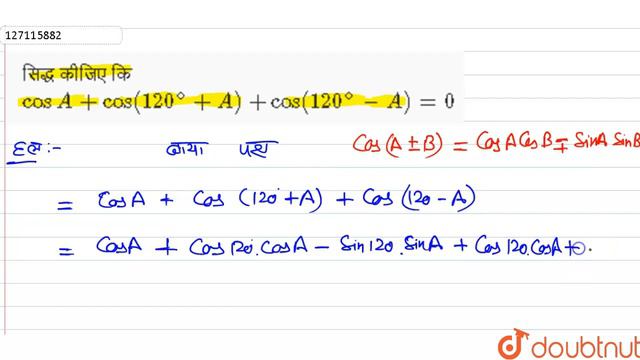 127115882
सिद्ध कीजिए कि
cos A + cos(120° + A) + cos(120° − A) = 0
हल :- बाया पक्ष Cos(A ± B) = CosA CosB ∓ SinA SinB
= CosA + Cos (120° + A) + Cos (120 - A)
= CosA + Cos 120°. CosA - Sin120. SinA + Cos 120. CosA +
doubtnut